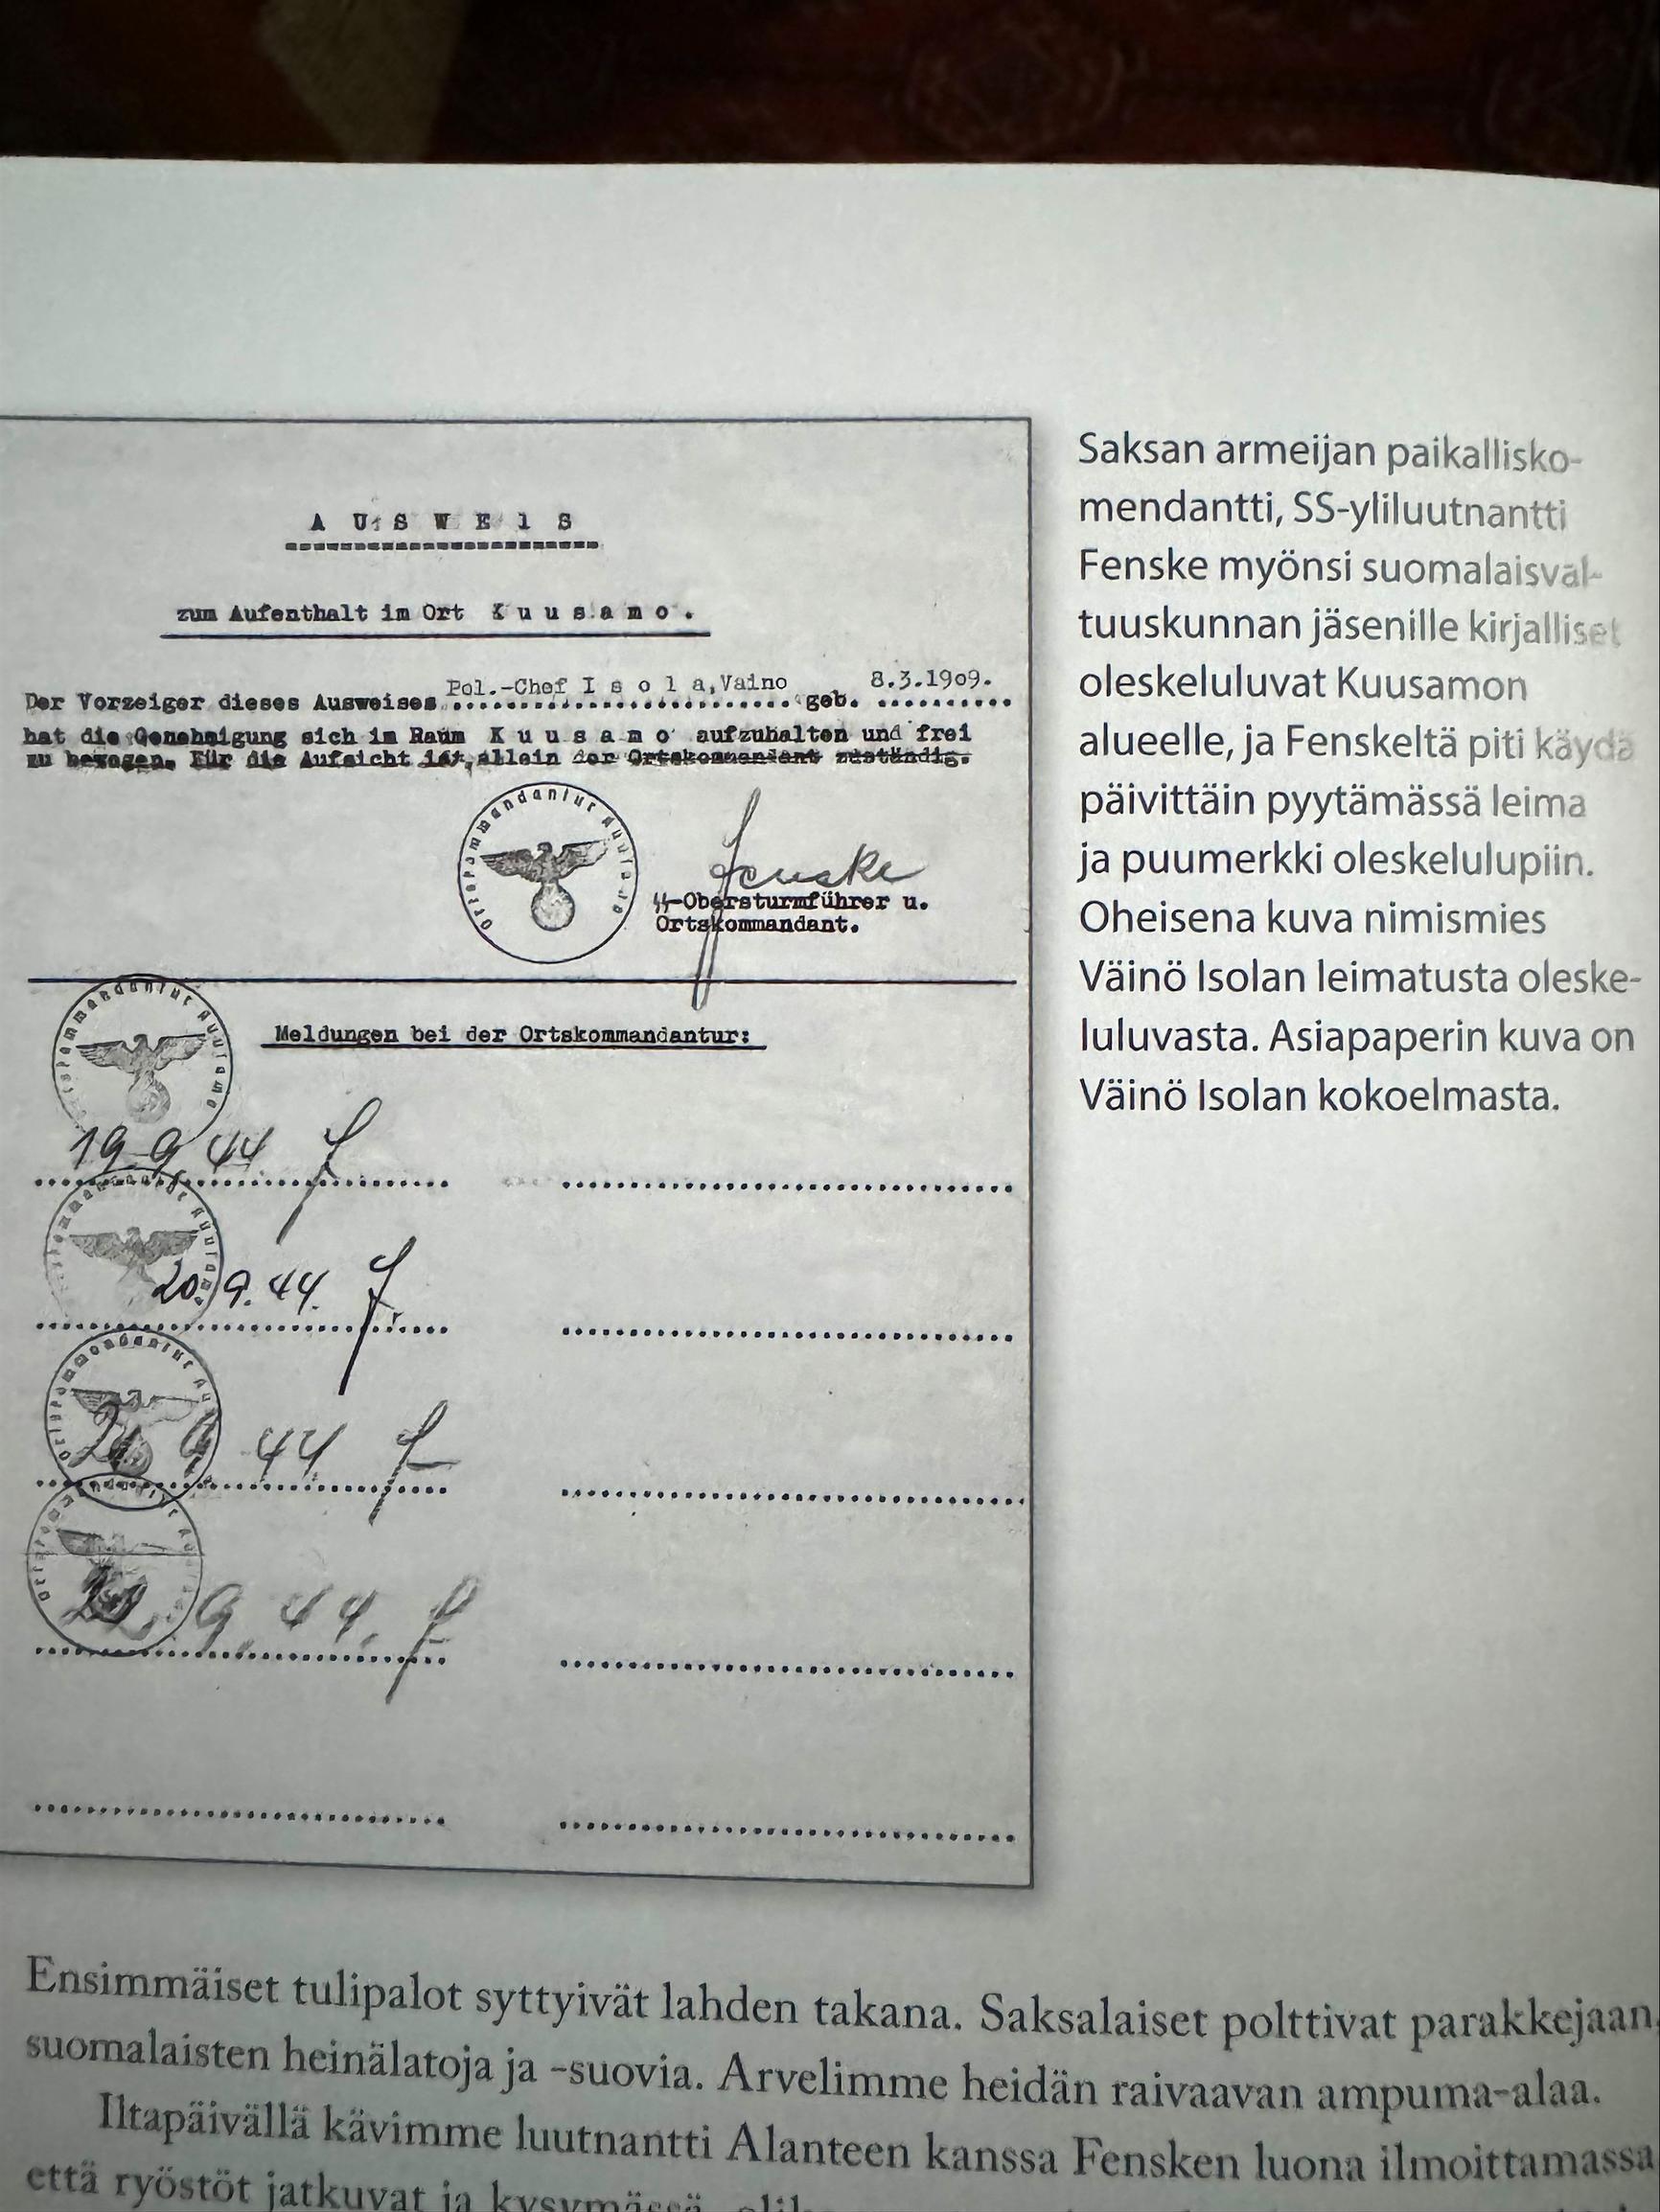 A U S W E I S
zum Aufenthalt im Ort K u u s a m o .
Pol.-Chef I s o l a, Vaino 8.3.1909.
Der Vorzeiger dieses Ausweises ........................ geb. ..........
hat die Genehmigung sich im Raum K u u s a m o aufzuhalten und frei
zu bewegen. Für die Aufsicht ist allein der Ortskommandant zuständig.
Ortskommandantur Kuusamo
Fenske
SS-Obersturmführer u.
Ortskommandant.
Ortskommandantur Kuusamo
Meldungen bei der Ortskommandantur:
19 9 44 F
Ortskommandantur Kuusamo
20. 9. 44. F.
Ortskommandantur
9 44 F
9. 44. F
Saksan armeijan paikallisko-
mendantti, SS-yliluutnantti
Fenske myönsi suomalaisval-
tuuskunnan jäsenille kirjalliset
oleskeluluvat Kuusamon
alueelle, ja Fenskeltä piti käydä
päivittäin pyytämässä leima
ja puumerkki oleskelulupiin.
Oheisena kuva nimismies
Väinö Isolan leimatusta oleske-
luluvasta. Asiapaperin kuva on
Väinö Isolan kokoelmasta.
Ensimmäiset tulipalot syttyivät lahden takana. Saksalaiset polttivat parakkejaan,
suomalaisten heinälatoja ja -suovia. Arvelimme heidän raivaavan ampuma-alaa.
Iltapäivällä kävimme luutnantti Alanteen kanssa Fensken luona ilmoittamassa
että ryöstöt jatkuvat ja kysymässä,